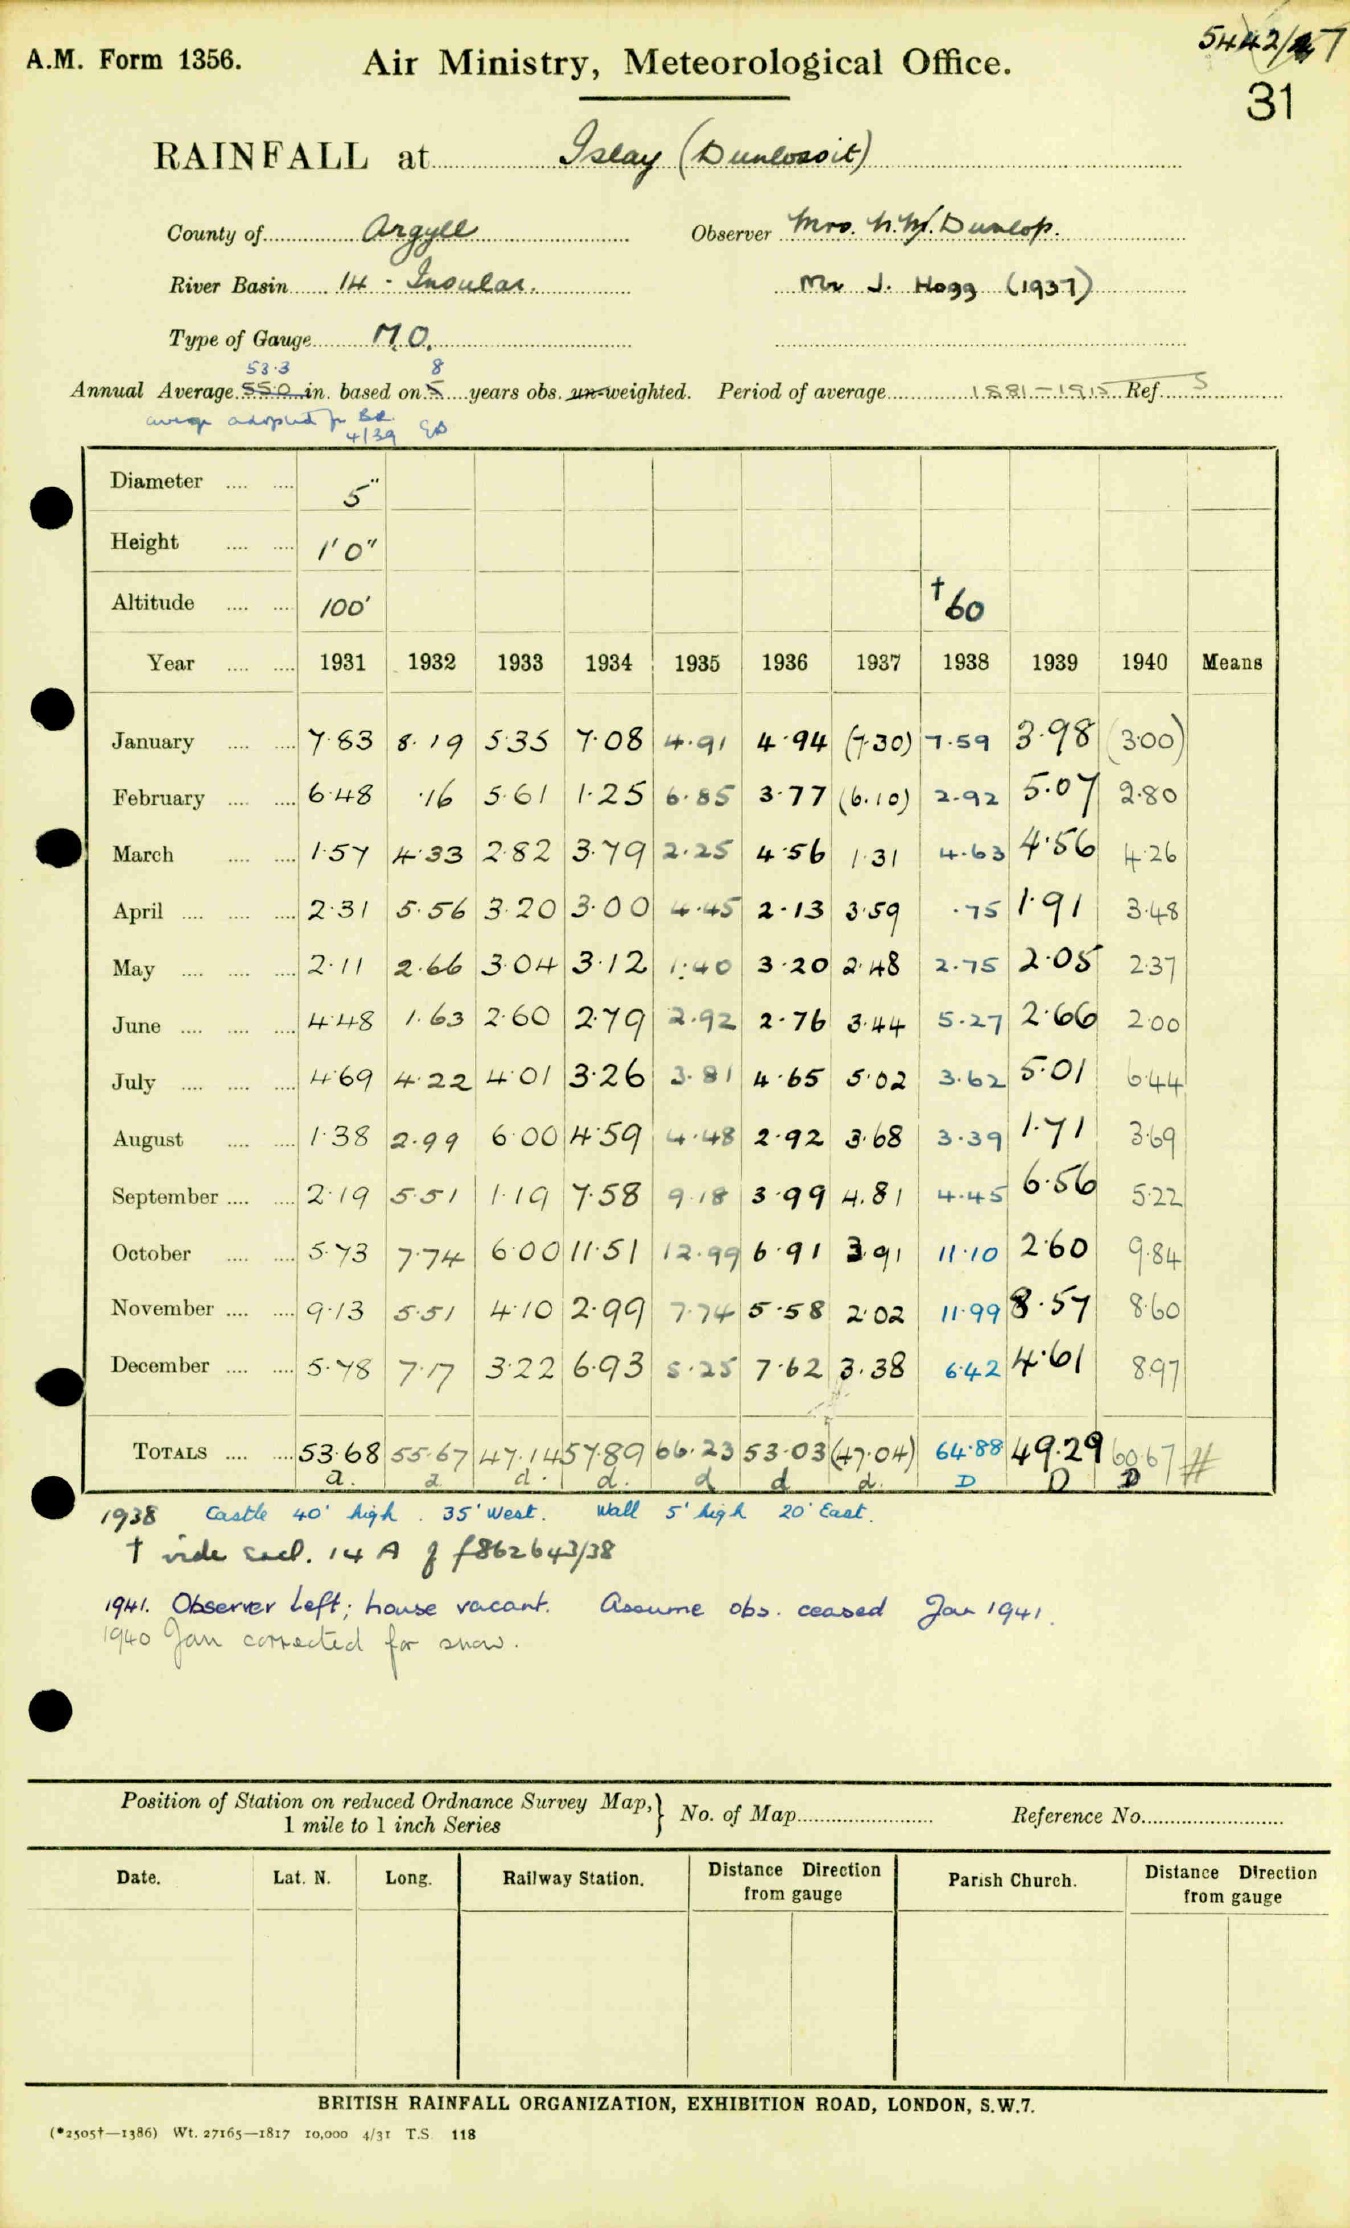 A.M. Form 1356.
Air Ministry, Meteorological Office.
31
RAINFALL at Islay (Dunlossit)
County of Argyll Observer Mrs. N.M. Dunlop.
River Basin 14 - Insular. Mr J. Hogg (1937)
Type of Gauge M.O.
53.3 8
Annual Average 55.0 in. based on 5 years obs. un-weighted. Period of average 1881-1915 Ref. 5
average adopted for BR
4/39
Diameter 5"
Height 1'0"
Altitude 100' †60
Year 1931 1932 1933 1934 1935 1936 1937 1938 1939 1940 Means
January 7.83 8.19 5.35 7.08 4.91 4.94 (7.30) 7.59 3.98 (3.00)
February 6.48 .16 5.61 1.25 6.85 3.77 (6.10) 2.92 5.07 2.80
March 1.57 4.33 2.82 3.79 2.25 4.56 1.31 4.63 4.56 4.26
April 2.31 5.56 3.20 3.00 4.45 2.13 3.59 .75 1.91 3.48
May 2.11 2.66 3.04 3.12 1.40 3.20 2.48 2.75 2.05 2.37
June 4.48 1.63 2.60 2.79 2.92 2.76 3.44 5.27 2.66 2.00
July 4.69 4.22 4.01 3.26 3.81 4.65 5.02 3.62 5.01 6.44
August 1.38 2.99 6.00 4.59 4.48 2.92 3.68 3.39 1.71 3.69
September 2.19 5.51 1.19 7.58 9.18 3.99 4.81 4.45 6.56 5.22
October 5.73 7.74 6.00 11.51 12.99 6.91 3.91 11.10 2.60 9.84
November 9.13 5.51 4.10 2.99 7.74 5.58 2.02 11.99 8.57 8.60
December 5.78 7.17 3.22 6.93 5.25 7.62 3.38 6.42 4.61 8.97
TOTALS 53.68 55.67 47.14 57.89 66.23 53.03 (47.04) 64.88 49.29 60.67 #
a. a d. d. d d d. D D D
1938 Castle 40' high. 35' West. Wall 5' high 20' East.
† vide encl. 14 A of f862643/38
1941. Observer left; house vacant. Assume obs. ceased Jan 1941.
1940 Jan corrected for snow.
Position of Station on reduced Ordnance Survey Map, } No. of Map Reference No.
1 mile to 1 inch Series
Date. Lat. N. Long. Railway Station. Distance Direction from gauge Parish Church. Distance Direction from gauge
BRITISH RAINFALL ORGANIZATION, EXHIBITION ROAD, LONDON, S.W.7.
(*2505†—1386) Wt. 27165—1817 10,000 4/31 T.S. 118